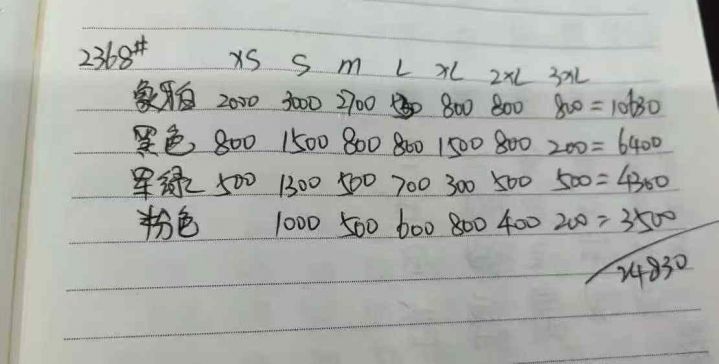 2368# XS S M L XL 2XL 3XL
象牙白 2000 3000 2700 800 800 800 = 10630
黑色 800 1500 800 800 1500 800 200 = 6400
军绿 500 1300 500 700 300 500 500 = 4300
粉色 1000 500 600 800 400 200 = 3500
24830